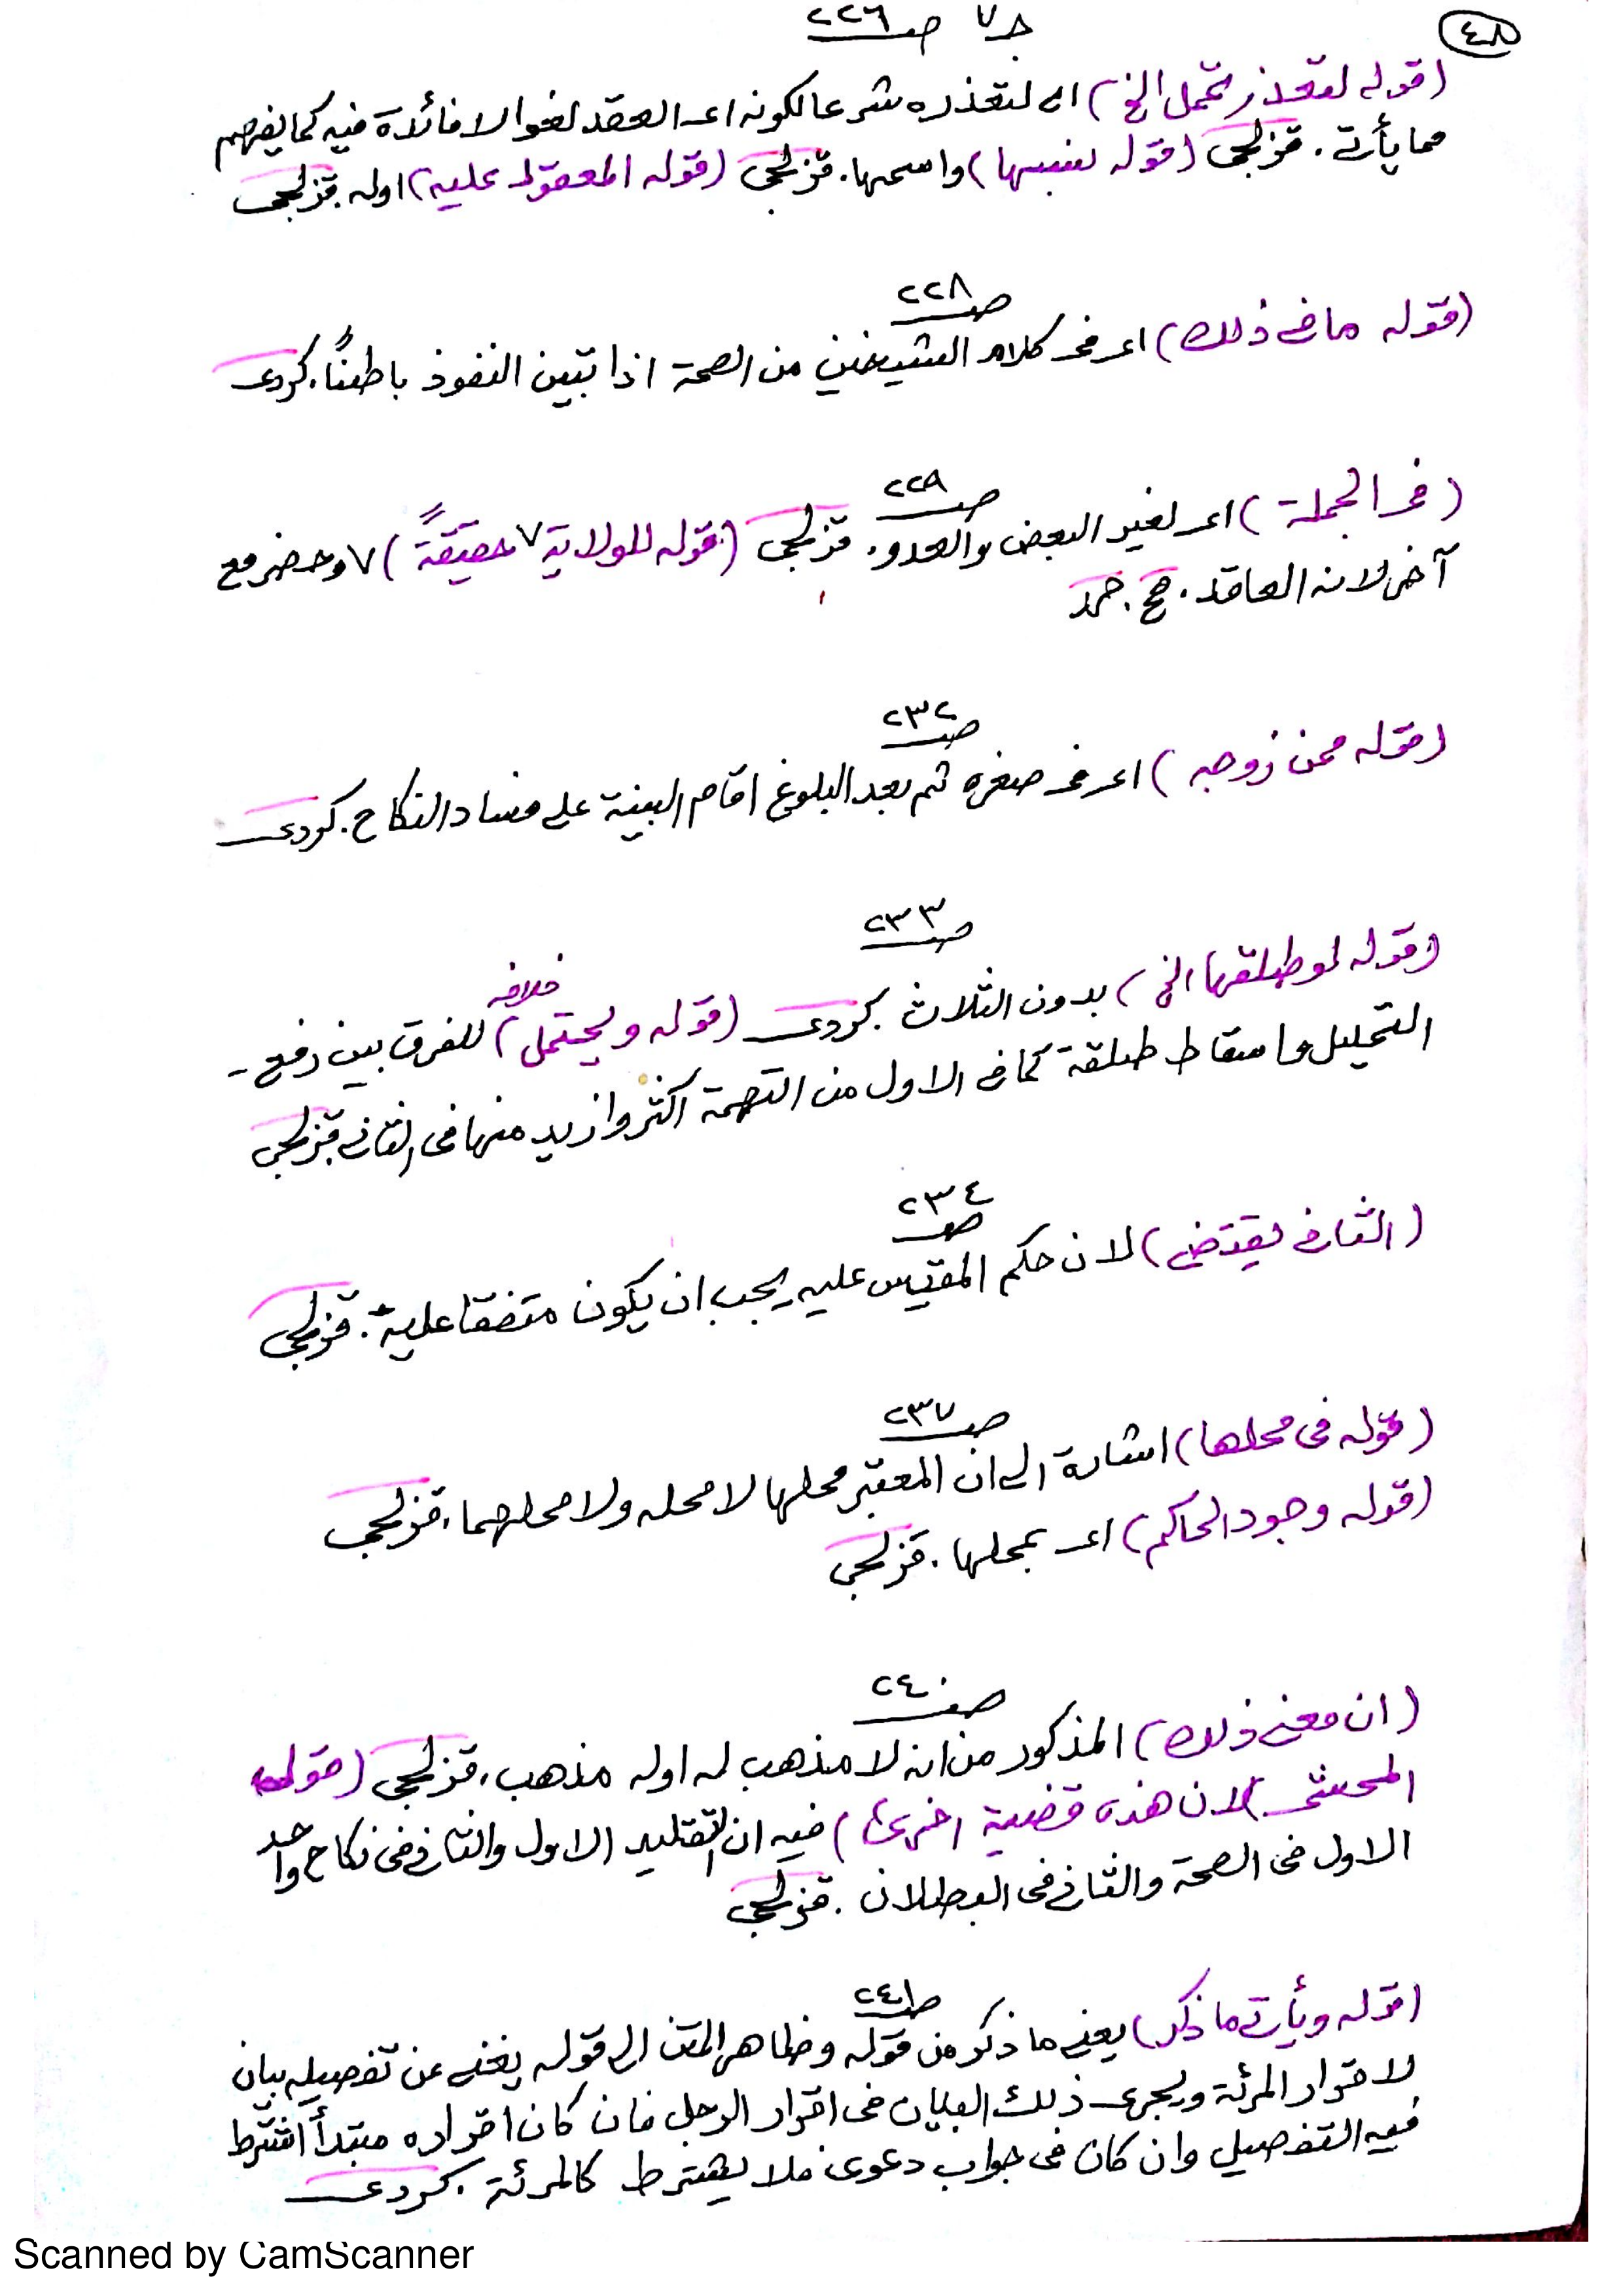 ٤٨
جـ٧ صـ ٢٢٦
(قوله لتعذر تحمل الخ) اى لتعذره شرعا لكونه اى العقد لغوا لا فائدة فيه كما يفهم
مما يأتى. قزلجى (قوله بنسبها) واسمها. قزلجى (قوله المعقود عليه) اوله. قزلجى
صـ ٢٢٨
(قوله ما فى ذلك) اى فى كلام الشيخين من الصحة اذا تبين النفوذ باطنًا. كردى
صـ ٢٢٩
(فى الجملة) اى لغير البعض والعدو. قزلجى (قوله للولاية ٧ حقيقةً) ٧ وحضر مع
آخر لانه العاقد. مح. حمد
صـ ٢٣٢
(قوله ممن زوجه) اى فى صغره ثم بعد البلوغ اقام البينة على فساد النكاح. كردى
صـ ٢٣٣
(قوله لو طلقها الخ) بدون الثلاث. كردى (قوله ويحتمل خلافه) للفرق بين رفع -
التحليل واسقاط طلقة كما فى الاول من التهمة اكثر وازيد منها فى الثانى قزلجى
صـ ٢٣٤
(الثانى يقتضى) لان حكم المقيس عليه يجب ان يكون متفقا عليه. قزلجى
صـ ٢٣٧
(قوله فى محلها) اشارة الى ان المعتبر محلها لا محله ولا محلهما. قزلجى
(قوله وجود الحاكم) اى بمحلها. قزلجى
صـ ٢٤٠
(ان معنى ذلك) المذكور من انه لا مذهب له اوله مذهب. قزلجى (قوله
المحشى) لان هذه قضية اخرى) فيه ان التقليد الاول والثانى فى نكاح واحد
الاول فى الصحة والثانى فى البطلان. قزلجى
صـ ٢٤١
(قوله ويأتى ما ذكر) يعنى ما ذكر من قوله وظاهر المتن الى قوله يغنى عن تفصيله بيان
لاقرار المرئة ويجرى ذلك البيان فى اقرار الرجل فان كان اقراره مبتدأ اشترط
فيه التفصيل وان كان فى جواب دعوى فلا يشترط كالمرئة. كردى
Scanned by CamScanner